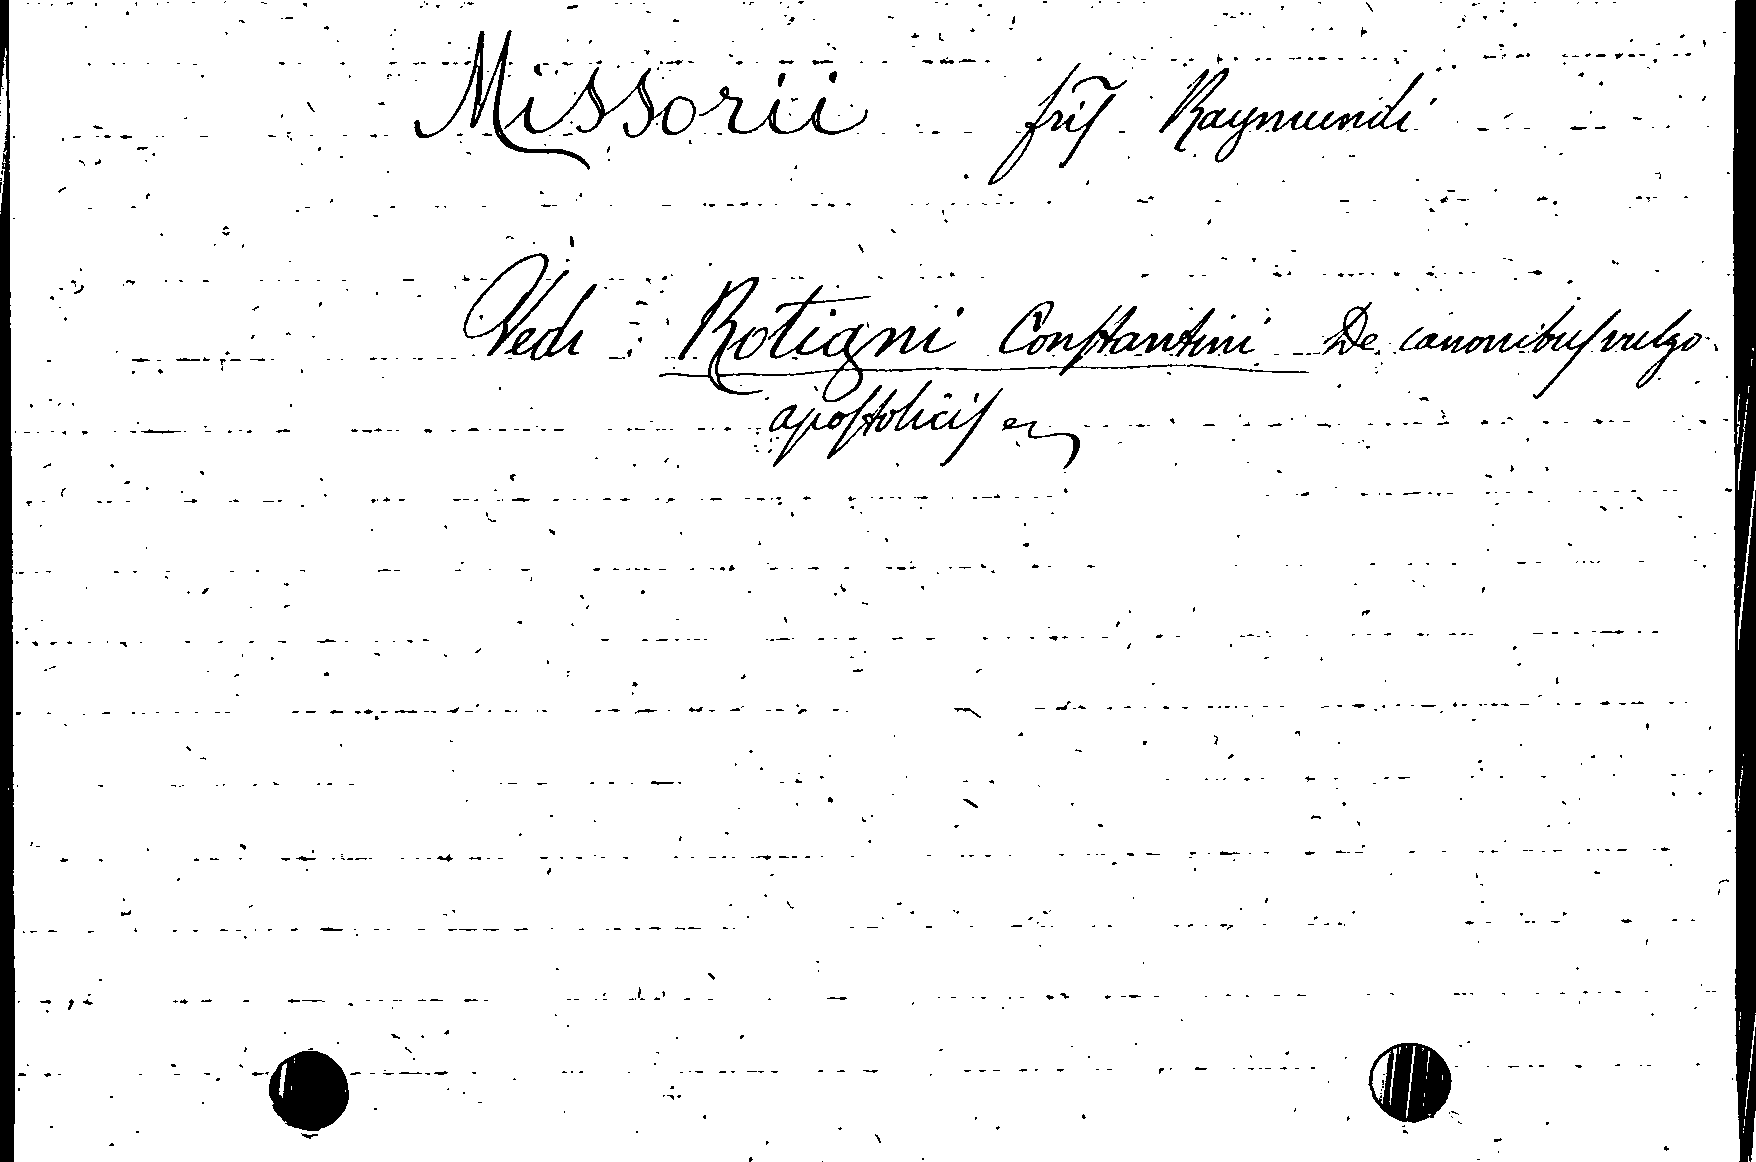 Missorii fr̃is Raymundi
Vedi : Rotigni Constantini De canonibus vulgo
apostolicis